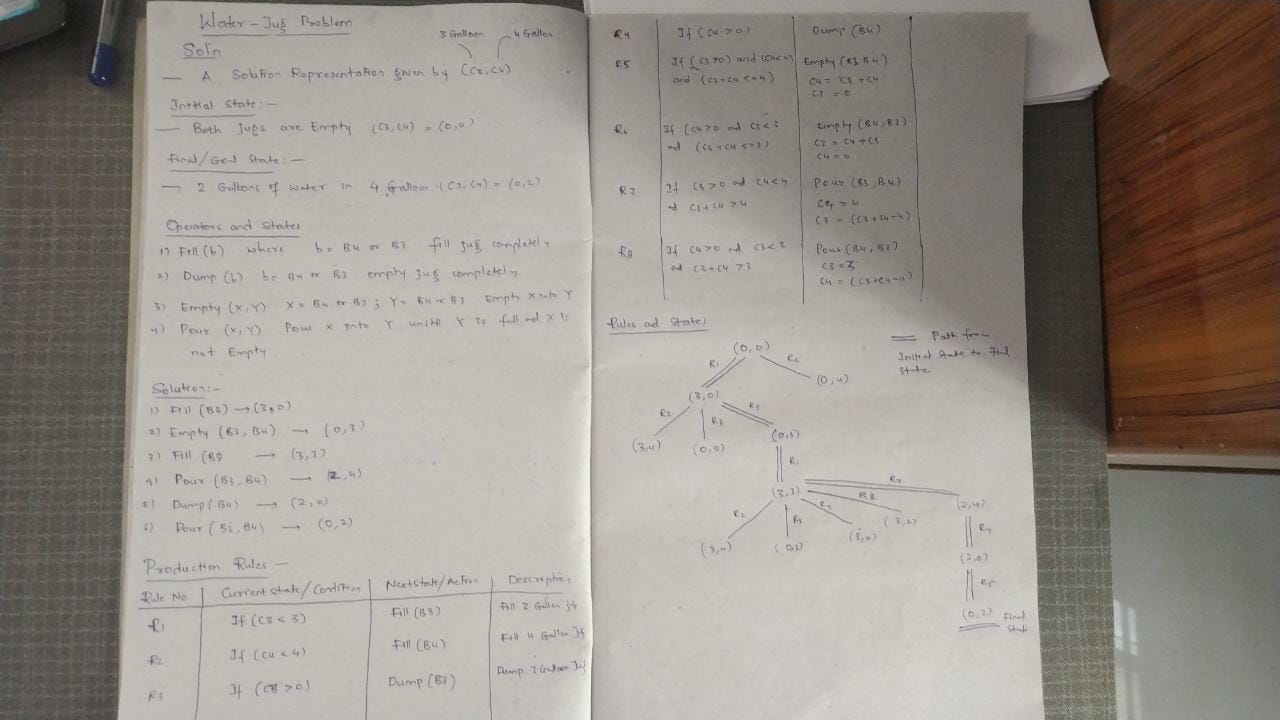 Water-Jug Problem
Soln
3 Galloon 4 Gallon
— A Solution Representation given by (C3, C4)
Initial State:—
— Both jugs are Empty (C3, C4) = (0,0)
Final/Goal State:—
→ 2 Gallons of water in 4 Galloon. (C3, C4) = (0,2)
Operators and States
1) Fill (b) where b = B4 or B3 fill jug completely
2) Dump (b) b = B4 or B3 empty jug completely
3) Empty (X, Y) X = B4 or B3 ; Y = B4 or B3 Empty X into Y
4) Pour (X, Y) Pour X into Y until Y is full and X is
not Empty
Solution:—
1) Fill (B3) → (3,0)
2) Empty (B3, B4) → (0,3)
3) Fill (B3) → (3,3)
4) Pour (B3, B4) → (2,4)
5) Dump (B4) → (2,0)
6) Pour (B3, B4) → (0,2)
Production Rules:—
Rule No Current State/Condition Next state/Action Description
R1 If (C3 < 3) Fill (B3) Fill 3 Gallon jg
R2 If (C4 < 4) Fill (B4) Fill 4 Gallon Jg
R3 If (C3 > 0) Dump (B3) Dump 3 Galloon Jg
R4 If (C4 > 0) Dump (B4)
R5 If (C3 > 0) and (C4 < 4) Empty (B3 B4)
and (C3+C4 <= 4) C4 = C3 + C4
C3 = 0
R6 If (C4 > 0 ad C3 < 3 Empty (B4, B3)
ad (C3 + C4 <= 3) C3 = C4 + C3
C4 = 0
R7 If C3 > 0 ad C4 < 4 Pour (B3, B4)
ad C3 + C4 > 4 C4 = 4
C3 = (C3 + C4 - 4)
R8 If C4 > 0 ad C3 < 3 Pour (B4, B3)
ad C3 + C4 > 3 C3 = 3
C4 = (C3 + C4 - 4)
Rules ad States
Path from
Initial State to Final
State
(0,0)
R1 R2
(0,4)
(3,0)
R2 R3 R5
(3,4) (0,0) (0,3)
R1
(3,3)
R7
R8
R2 R3
(2,4)
(3,2)
(3,0)
(3,4) (0,3)
R4
(2,0)
R5
(0,2) Final
State